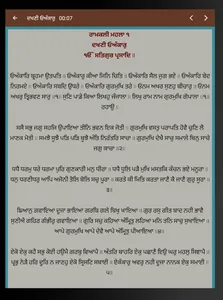 ਦਖਣੀ ਓਅੰਕਾਰੁ 00:07
ਰਾਮਕਲੀ ਮਹਲਾ ੧
ਦਖਣੀ ਓਅੰਕਾਰੁ
ੴ ਸਤਿਗੁਰ ਪ੍ਰਸਾਦਿ ॥
ਓਅੰਕਾਰਿ ਬ੍ਰਹਮਾ ਉਤਪਤਿ ॥ ਓਅੰਕਾਰੁ ਕੀਆ ਜਿਨਿ ਚਿਤਿ ॥ ਓਅੰਕਾਰਿ ਸੈਲ ਜੁਗ ਭਏ ॥ ਓਅੰਕਾਰਿ ਬੇਦ
ਨਿਰਮਏ ॥ ਓਅੰਕਾਰਿ ਸਬਦਿ ਉਧਰੇ ॥ ਓਅੰਕਾਰਿ ਗੁਰਮੁਖਿ ਤਰੇ ॥ ਓਨਮ ਅਖਰ ਸੁਣਹੁ ਬੀਚਾਰੁ ॥ ਓਨਮ
ਅਖਰੁ ਤ੍ਰਿਭਵਣ ਸਾਰੁ ॥੧॥ ਸੁਣਿ ਪਾਡੇ ਕਿਆ ਲਿਖਹੁ ਜੰਜਾਲਾ ॥ ਲਿਖੁ ਰਾਮ ਨਾਮ ਗੁਰਮੁਖਿ ਗੋਪਾਲਾ ॥੧॥
ਰਹਾਉ ॥
ਸਸੈ ਸਭੁ ਜਗੁ ਸਹਜਿ ਉਪਾਇਆ ਤੀਨਿ ਭਵਨ ਇਕ ਜੋਤੀ ॥ ਗੁਰਮੁਖਿ ਵਸਤੁ ਪਰਾਪਤਿ ਹੋਵੈ ਚੁਣਿ ਲੈ
ਮਾਣਕ ਮੋਤੀ ॥ ਸਮਝੈ ਸੂਝੈ ਪੜਿ ਪੜਿ ਬੂਝੈ ਅੰਤਿ ਨਿਰੰਤਰਿ ਸਾਚਾ ॥ ਗੁਰਮੁਖਿ ਦੇਖੈ ਸਾਚੁ ਸਮਾਲੇ ਬਿਨੁ ਸਾਚੇ
ਜਗੁ ਕਾਚਾ ॥੨॥
ਧਧੈ ਧਰਮੁ ਧਰੇ ਧਰਮਾ ਪੁਰਿ ਗੁਣਕਾਰੀ ਮਨੁ ਧੀਰਾ ॥ ਧਧੈ ਧੂਲਿ ਪੜੈ ਮੁਖਿ ਮਸਤਕਿ ਕੰਚਨ ਭਏ ਮਨੂਰਾ ॥
ਧਨੁ ਧਰਣੀਧਰੁ ਆਪਿ ਅਜੋਨੀ ਤੋਲਿ ਬੋਲਿ ਸਚੁ ਪੂਰਾ ॥ ਕਰਤੇ ਕੀ ਮਿਤਿ ਕਰਤਾ ਜਾਣੈ ਕੈ ਜਾਣੈ ਗੁਰੁ ਸੂਰਾ ॥
੩॥
ਙਿਆਨੁ ਗਵਾਇਆ ਦੂਜਾ ਭਾਇਆ ਗਰਬਿ ਗਲੇ ਬਿਖੁ ਖਾਇਆ ॥ ਗੁਰ ਰਸੁ ਗੀਤ ਬਾਦ ਨਹੀ ਭਾਵੈ
ਸੁਣੀਐ ਗਹਿਰ ਗੰਭੀਰੁ ਗਵਾਇਆ ॥ ਗੁਰਿ ਸਚੁ ਕਹਿਆ ਅੰਮ੍ਰਿਤੁ ਲਹਿਆ ਮਨਿ ਤਨਿ ਸਾਚੁ ਸੁਖਾਇਆ ॥
ਆਪੇ ਗੁਰਮੁਖਿ ਆਪੇ ਦੇਵੈ ਆਪੇ ਅੰਮ੍ਰਿਤੁ ਪੀਆਇਆ ॥੪॥
ਏਕੋ ਏਕੁ ਕਹੈ ਸਭੁ ਕੋਈ ਹਉਮੈ ਗਰਬੁ ਵਿਆਪੈ ॥ ਅੰਤਰਿ ਬਾਹਰਿ ਏਕੁ ਪਛਾਣੈ ਇਉ ਘਰੁ ਮਹਲੁ ਸਿਞਾਪੈ ॥
ਪ੍ਰਭੁ ਨੇੜੈ ਹਰਿ ਦੂਰਿ ਨ ਜਾਣਹੁ ਏਕੋ ਸ੍ਰਿਸਟਿ ਸਬਾਈ ॥ ਏਕੰਕਾਰੁ ਅਵਰੁ ਨਹੀ ਦੂਜਾ ਨਾਨਕ ਏਕੁ ਸਮਾਈ ॥
੫॥